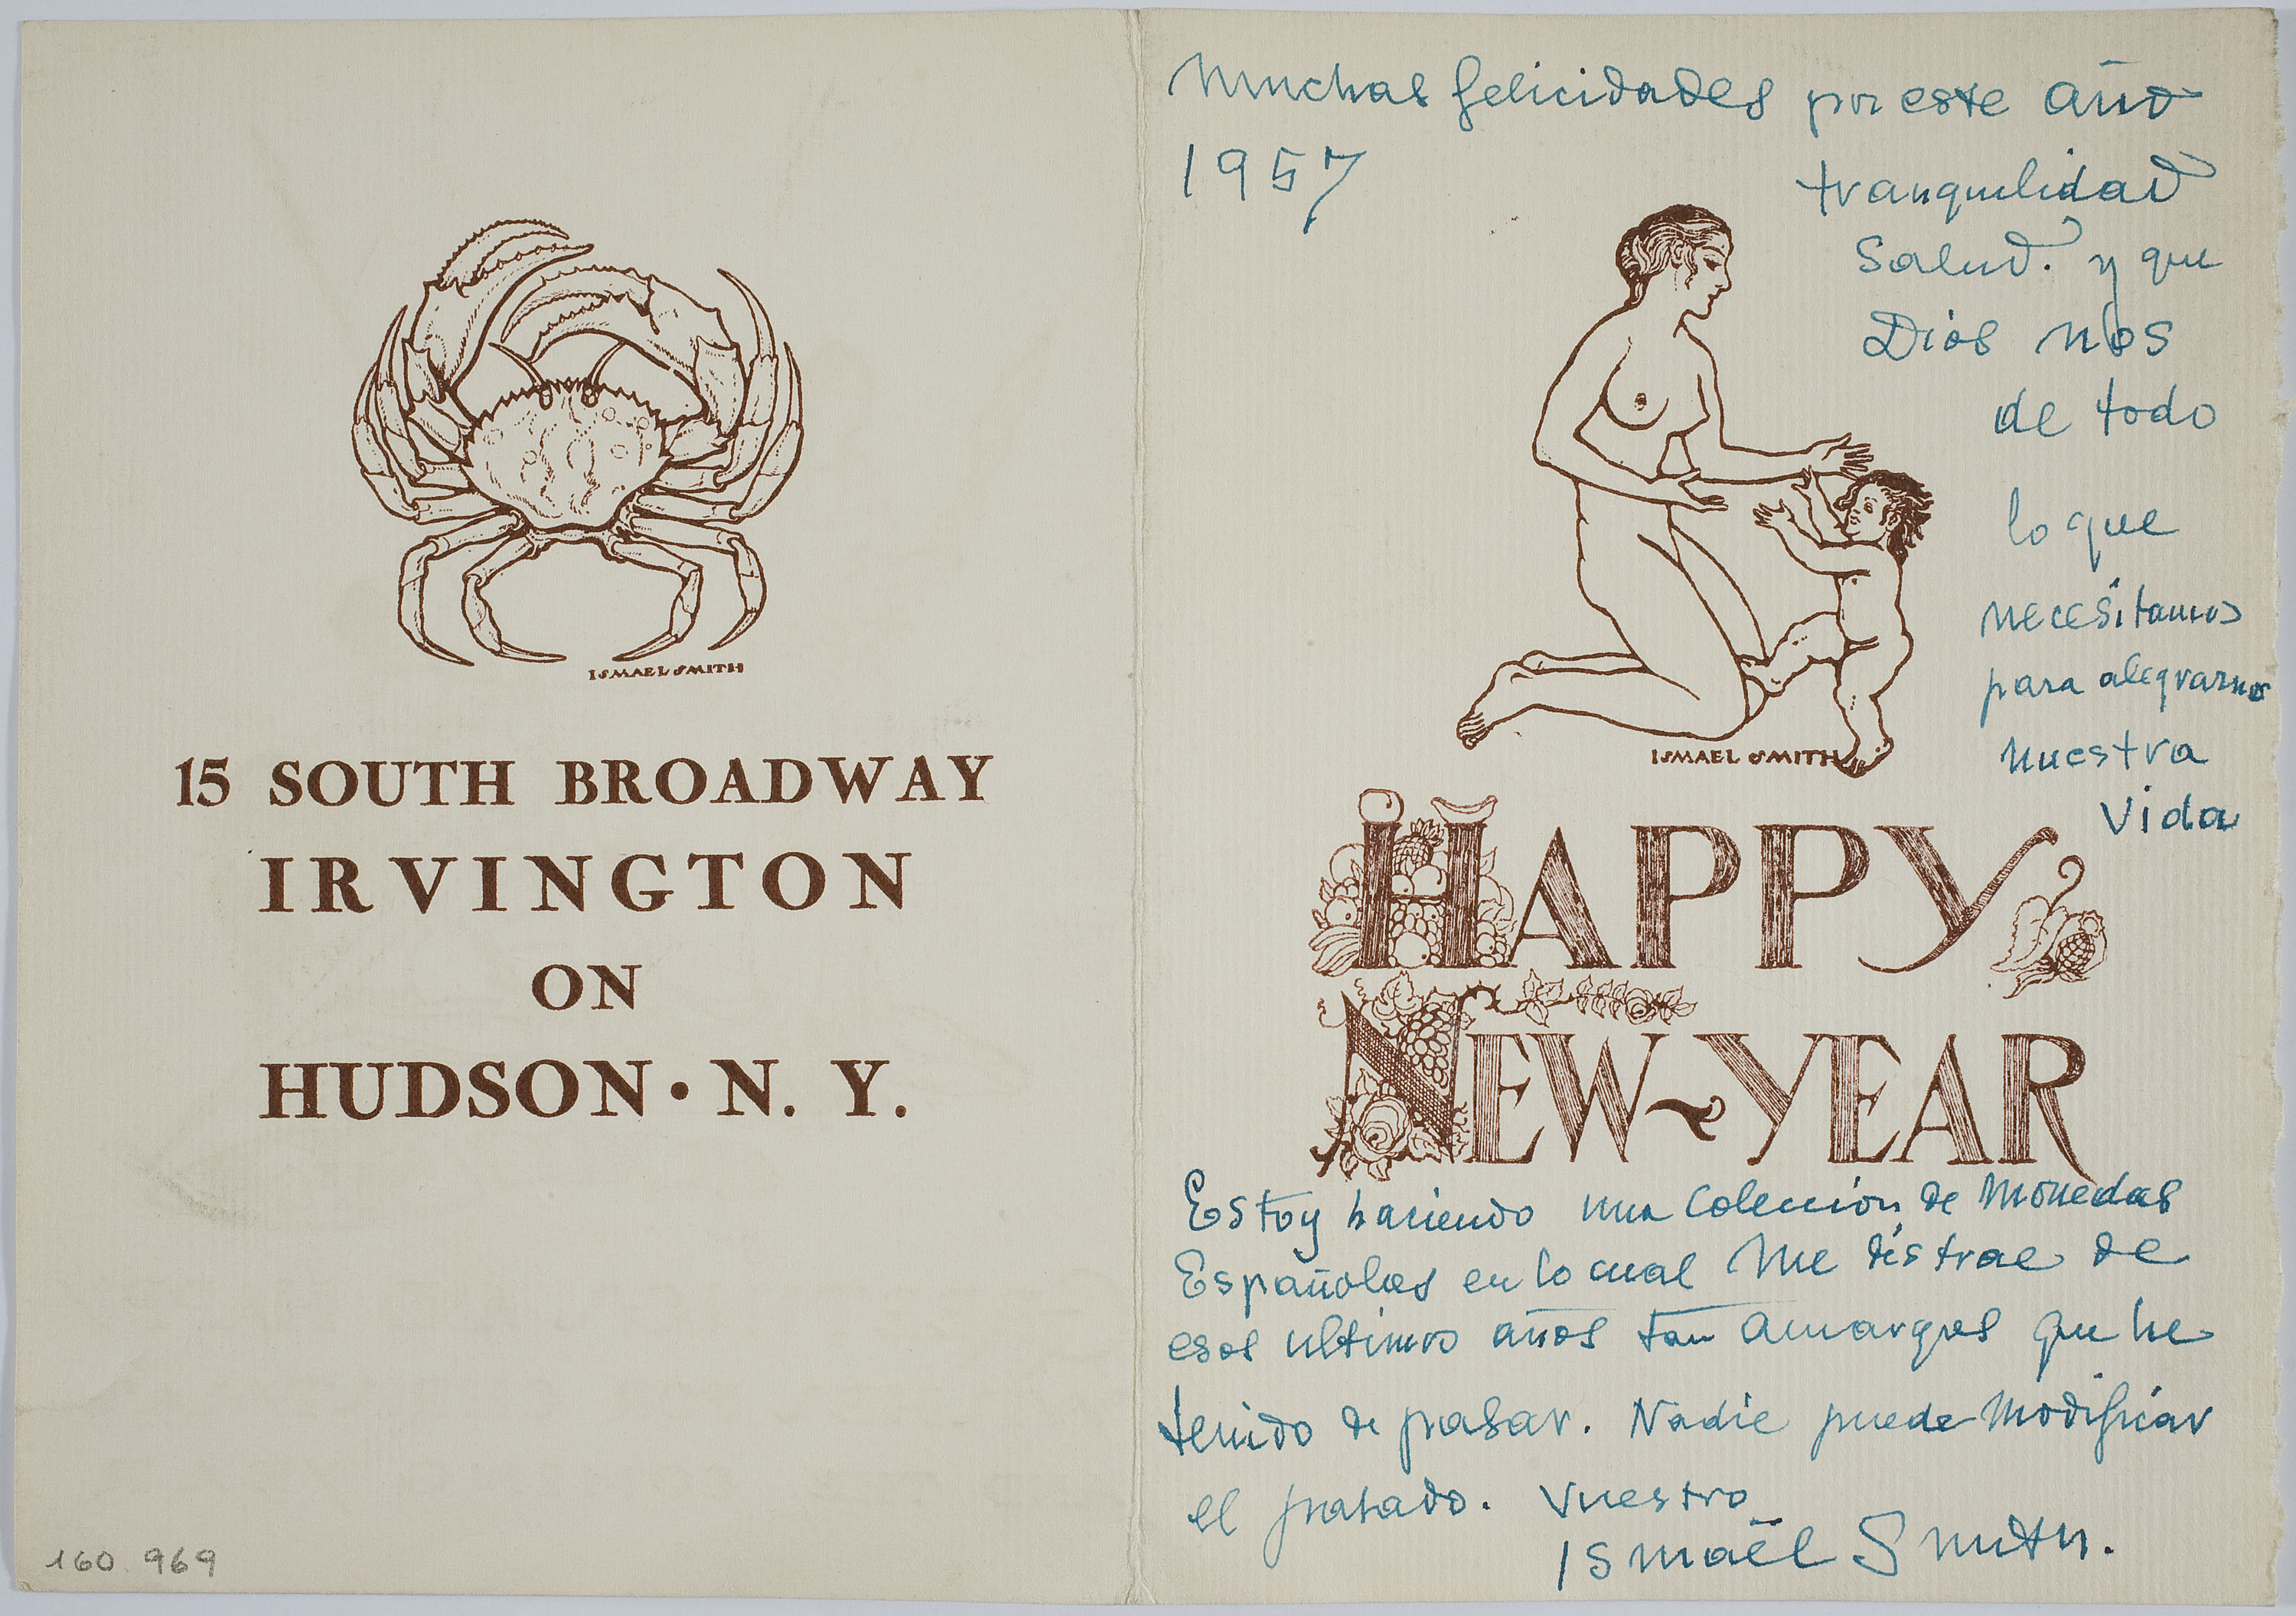 ISMAEL SMITH
15 SOUTH BROADWAY
IRVINGTON
ON
HUDSON • N. Y.
160.969
Muchas felicidades por este año
1957
tranquilidad
Salud. y que
Dios nos
de todo
lo que
necesitamos
para alegrarnos
nuestra
vida
ISMAEL SMITH
HAPPY
NEW~YEAR
Estoy haciendo una Colección de Monedas
Españolas en lo cual Me distrae de
esos ultimos años tan amargos que he
tenido de pasar. Nadie puede Modificar
el pasado. Vuestro
Ismaël Smith.